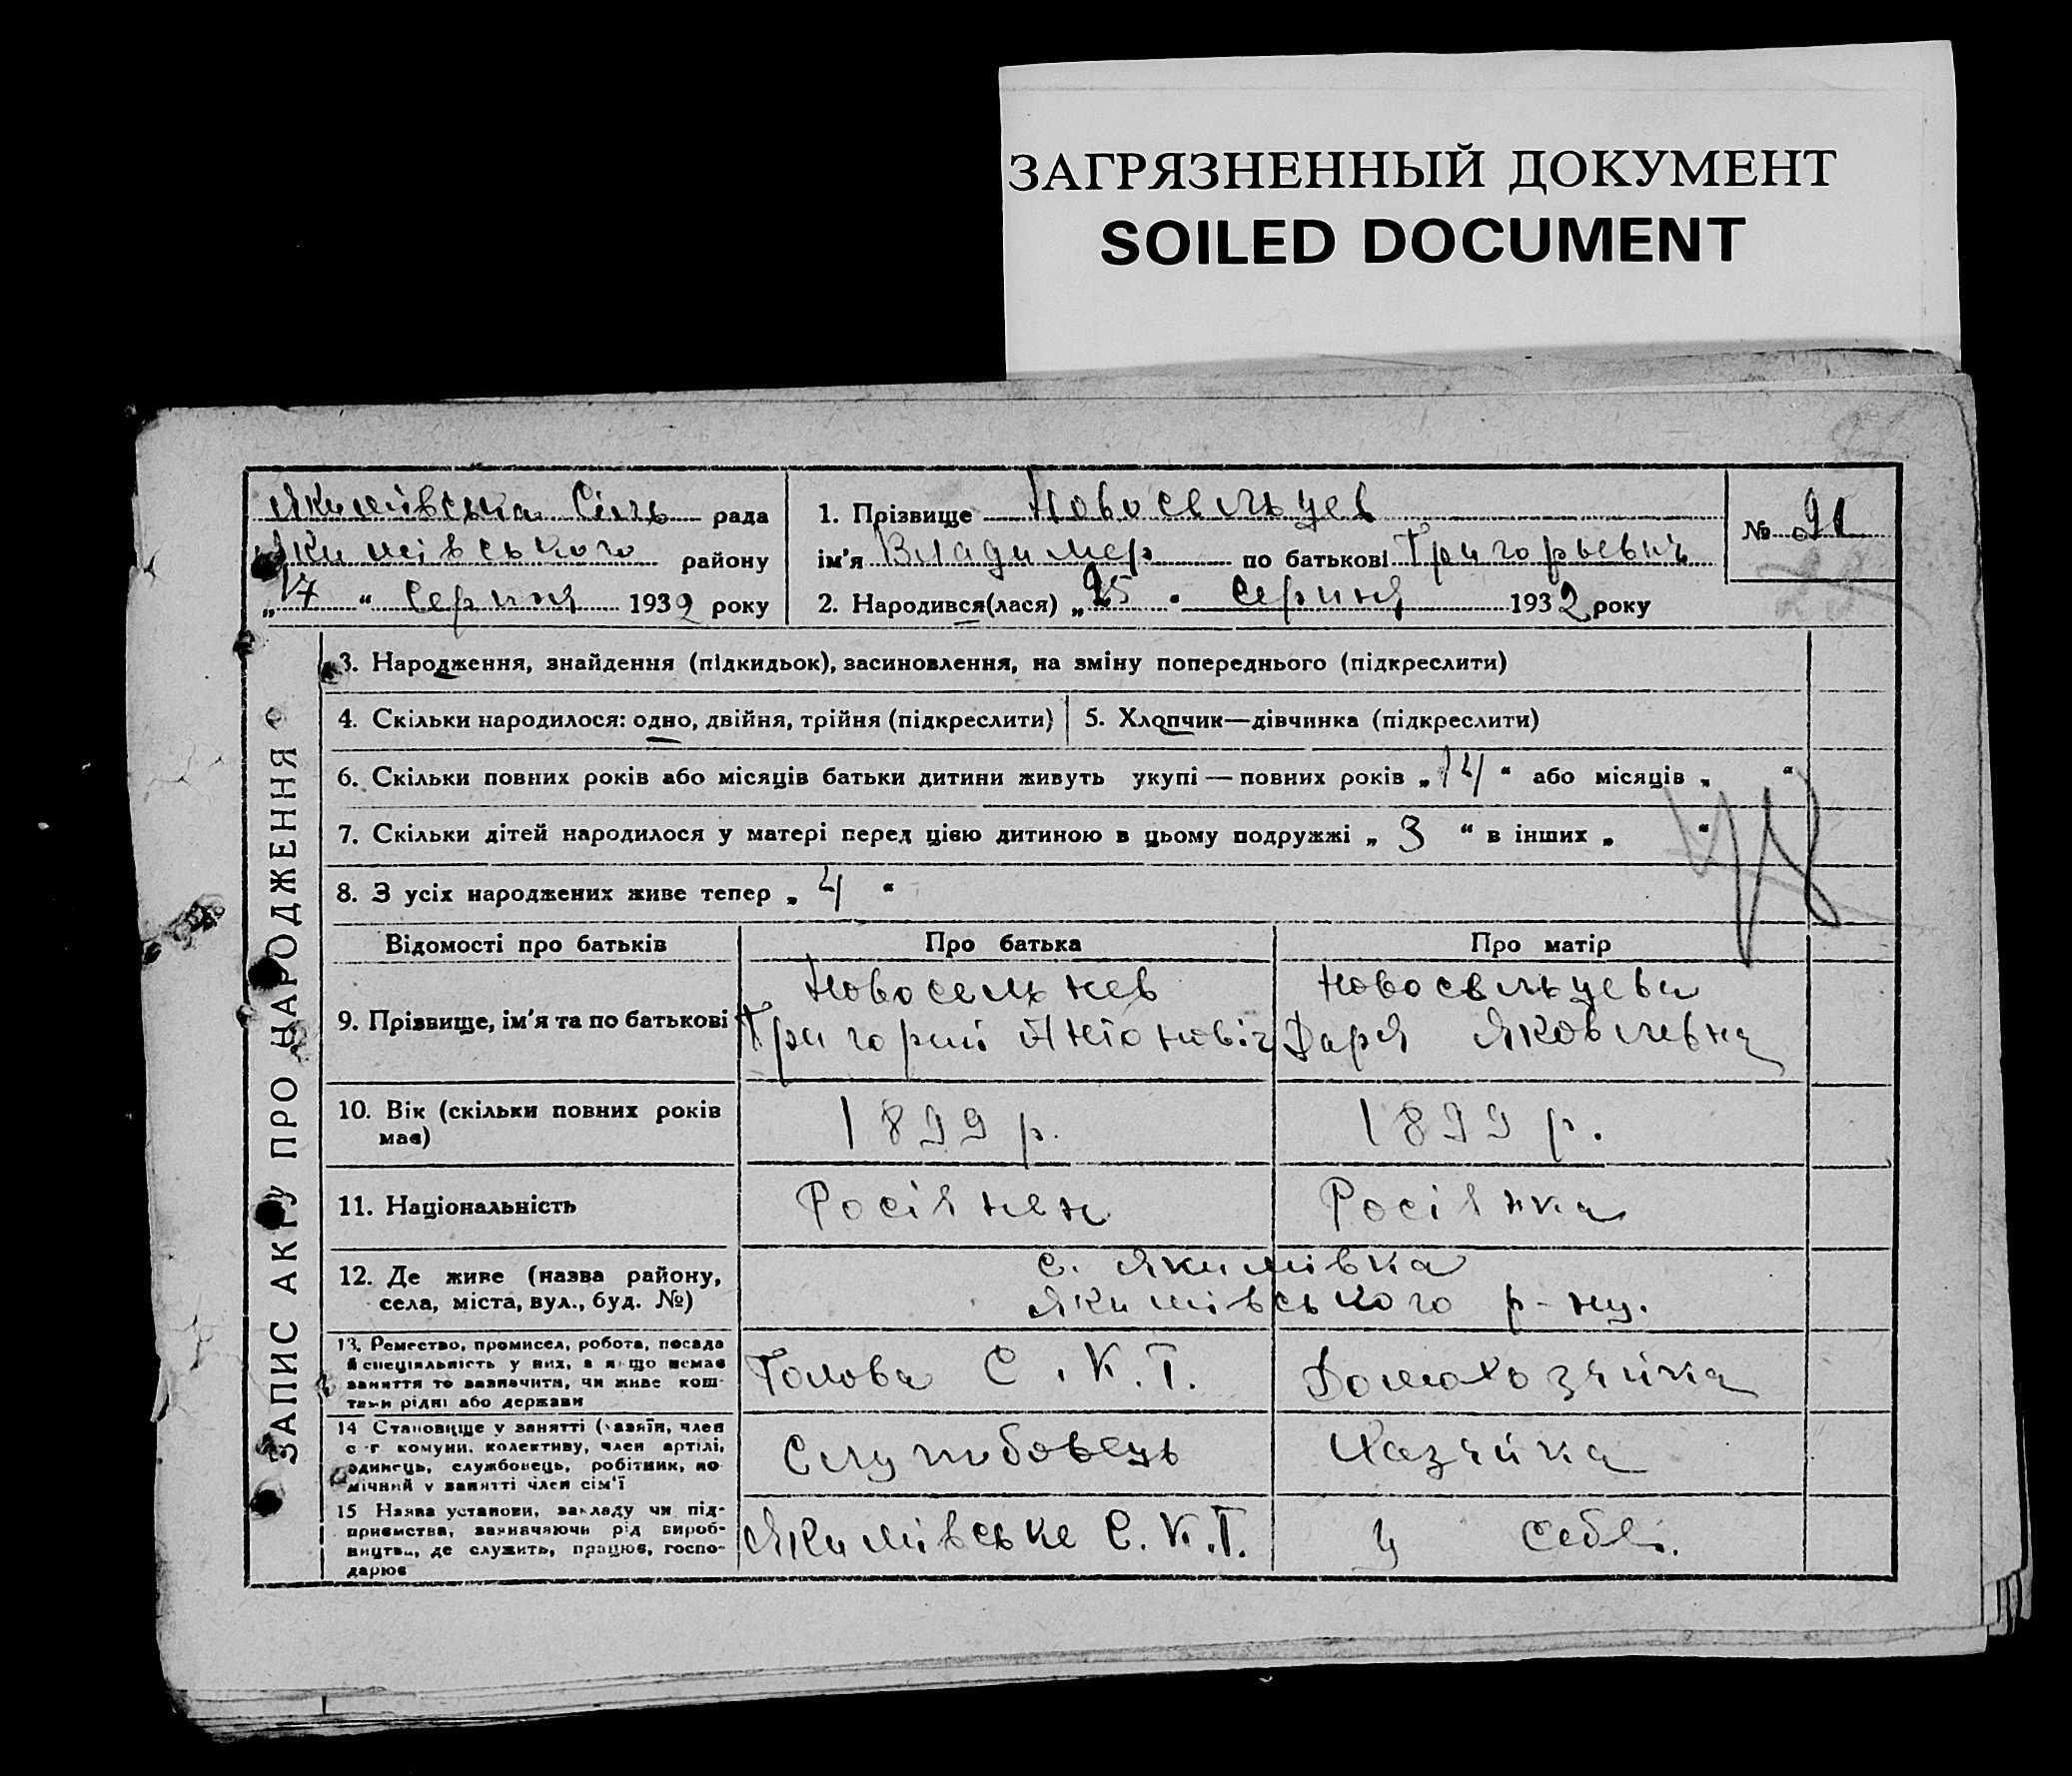 ЗАГРЯЗНЕННЫЙ ДОКУМЕНТ
SOILED DOCUMENT
Якимівська Сіль рада
Якимівського району
„17“ Серпня 1932 року
1. Прізвище Новосельцев
ім'я Владимер по батькові Григорьевич
2. Народився(лася) „25 Серпня 1932 року
№ 91
ЗАПИС АКТУ ПРО НАРОДЖЕННЯ
3. Народження, знайдення (підкидьок), засиновлення, на зміну попереднього (підкреслити)
4. Скільки народилося: одно, двійня, трійня (підкреслити) 5. Хлопчик—дівчинка (підкреслити)
6. Скільки повних років або місяців батьки дитини живуть укупі — повних років „14“ або місяців „ “
7. Скільки дітей народилося у матері перед цією дитиною в цьому подружжі „3“ в інших „ “
8. З усіх народжених живе тепер „4“
Відомості про батьків Про батька Про матір
9. Прізвище, ім'я та по батькові
Новосельцев
Григорий Антоновіч
Новосельцева
Дарья Яковлевна
10. Вік (скільки повних років
має)
1899 р.
1899 р.
11. Національність Росіянен Росіянка
12. Де живе (назва району,
села, міста, вул., буд. №)
с. Якимівка
Якимівського р-ну.
13. Ремество, промисел, робота, посада
й спеціяльність у них, а якщо немає
заняття то зазначити, чи живе кош-
тами рідні або держави
Голова С.К.Т.
Домохозяйка
14 Становище у занятті (хазяїн, член
с-г комуни, колективу, член артілі,
одинець, службовець, робітник, по
мічний у занятті член сім'ї
Службовець
Хазяйка
15 Назва установи, закладу чи під-
приємства, зазначаючи рід вироб-
ництва, де служить, працює, госпо-
дарює
Якимівське С.К.Т.
у себе.